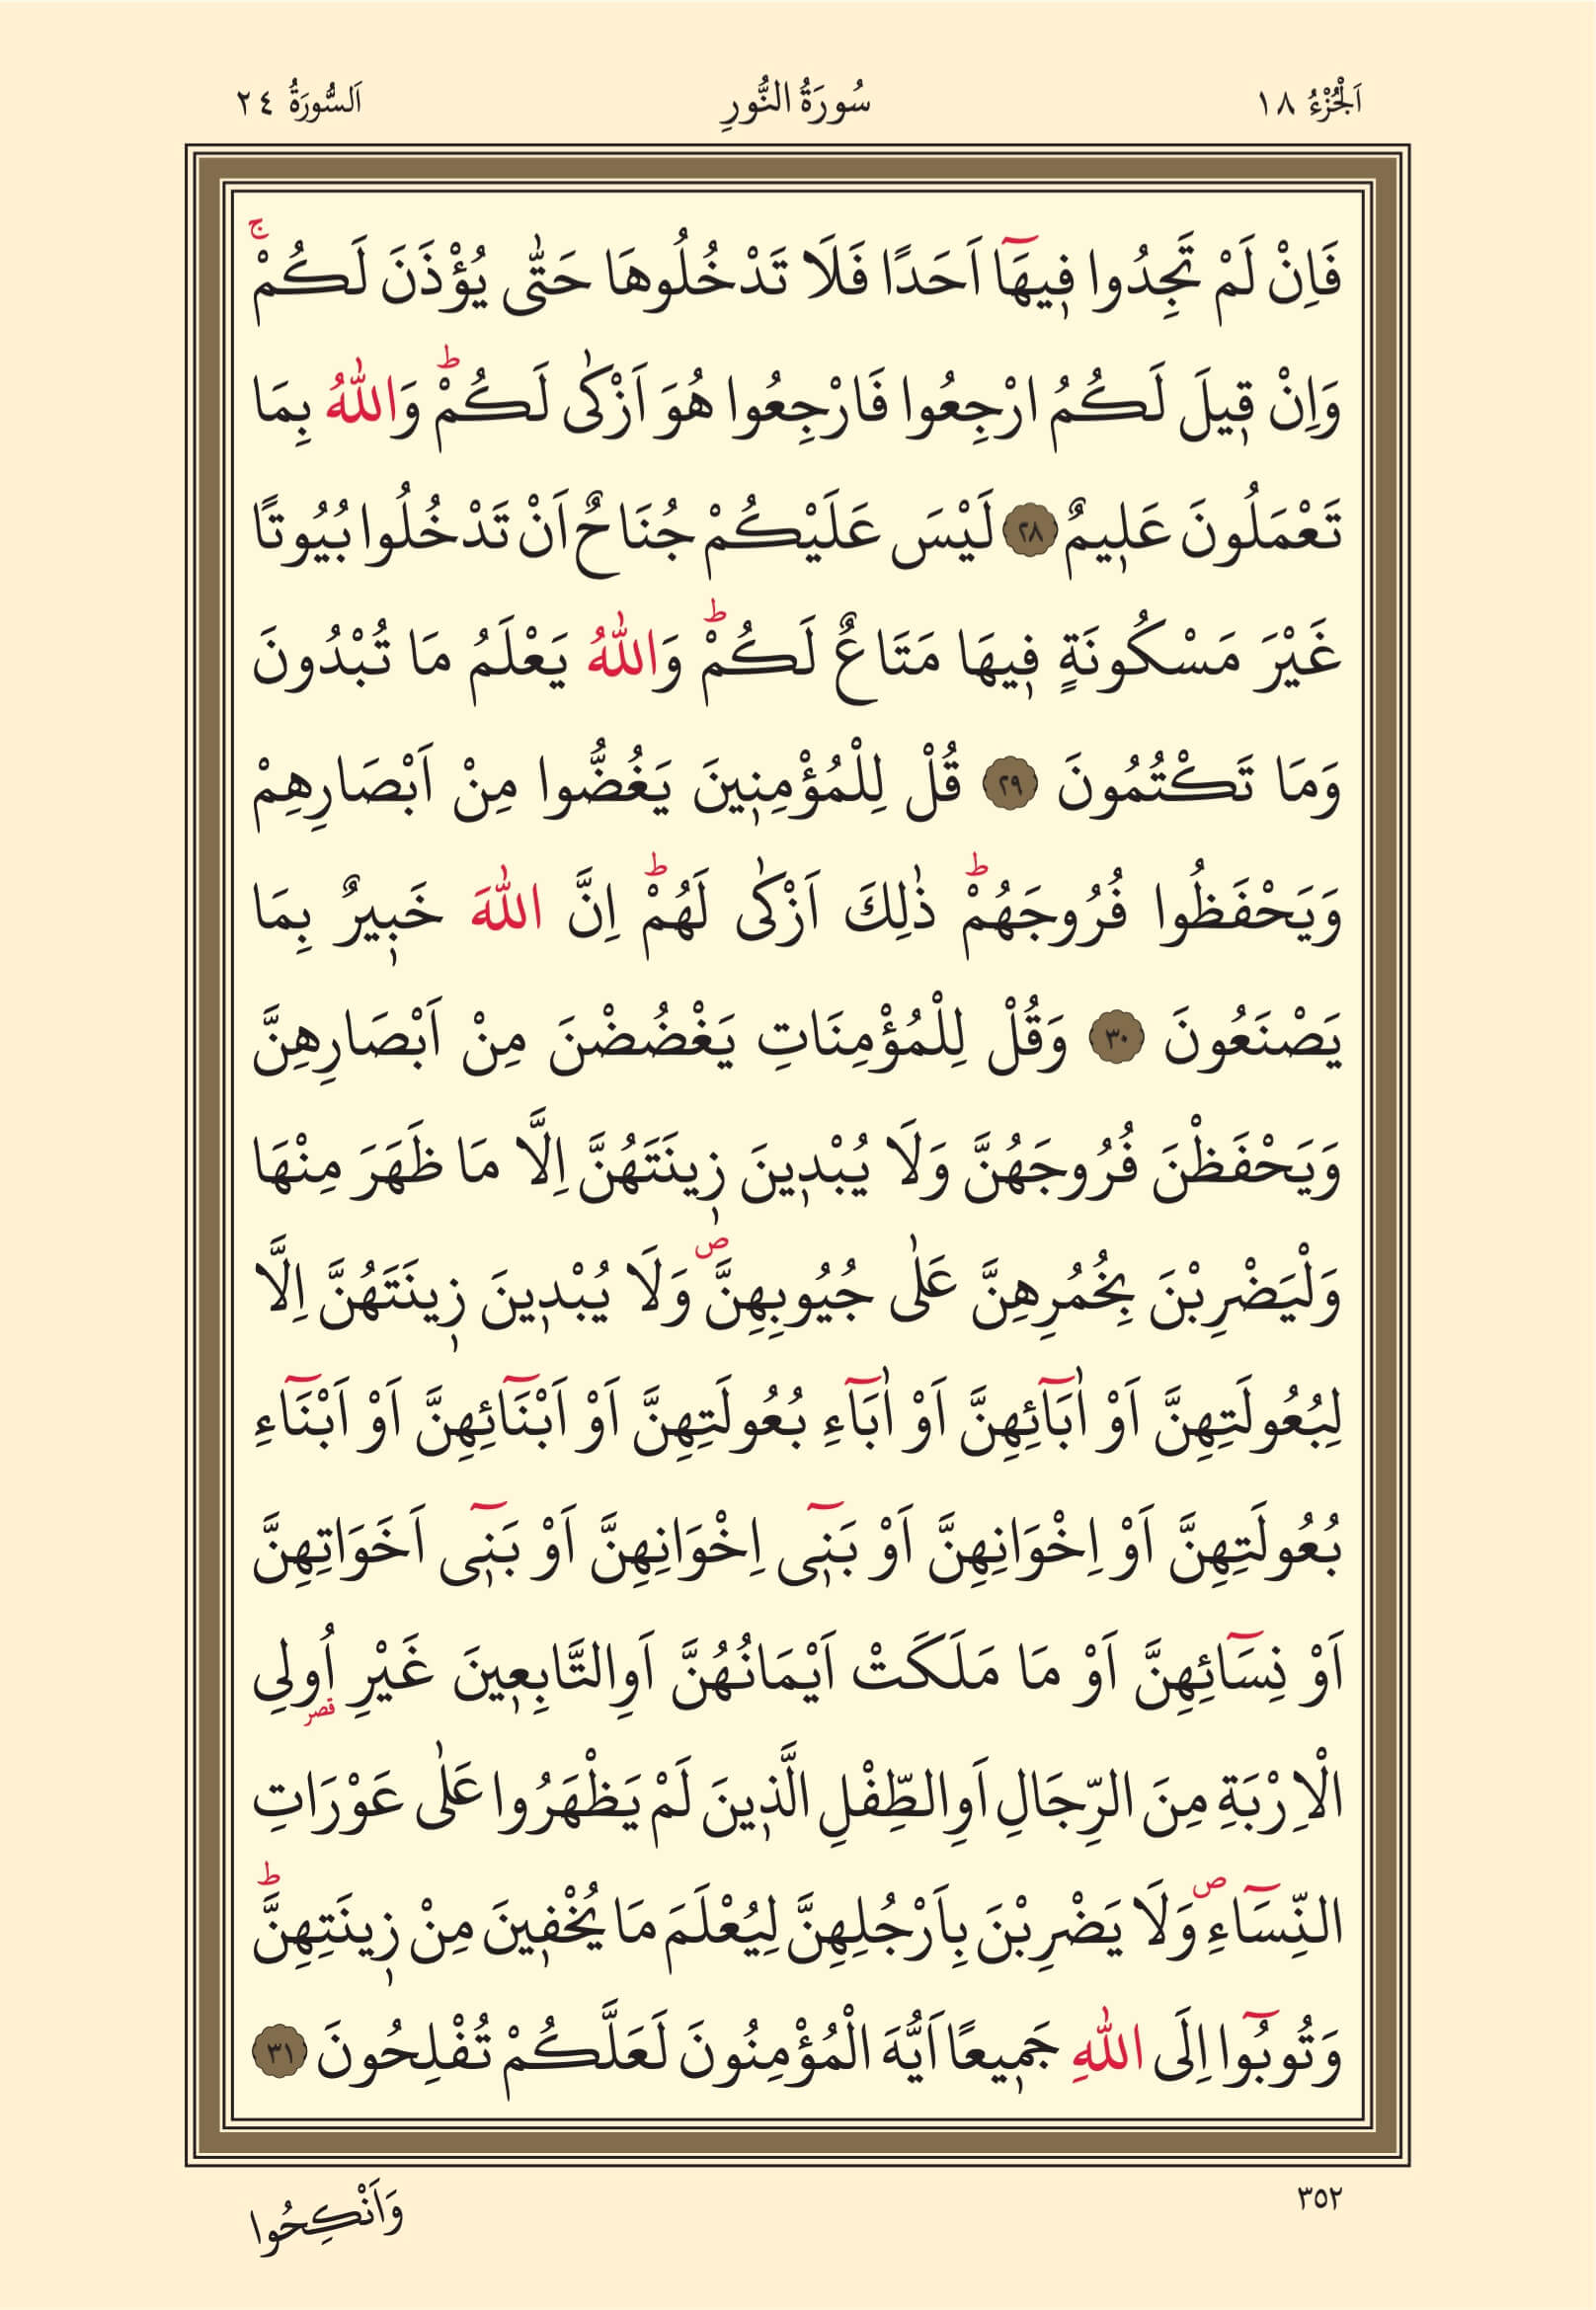 اَلْجُزْءُ ١٨
سُورَةُ النُّورِ
اَلسُّورَةُ ٢٤
فَاِنْ لَمْ تَجِدُوا فٖيهَٓا اَحَدًا فَلَا تَدْخُلُوهَا حَتّٰى يُؤْذَنَ لَكُمْۚ
وَاِنْ قٖيلَ لَكُمُ ارْجِعُوا فَارْجِعُوا هُوَ اَزْكٰى لَكُمْؕ وَاللّٰهُ بِمَا
تَعْمَلُونَ عَلٖيمٌ ٢٨ لَيْسَ عَلَيْكُمْ جُنَاحٌ اَنْ تَدْخُلُوا بُيُوتًا
غَيْرَ مَسْكُونَةٍ فٖيهَا مَتَاعٌ لَكُمْؕ وَاللّٰهُ يَعْلَمُ مَا تُبْدُونَ
وَمَا تَكْتُمُونَ ٢٩ قُلْ لِلْمُؤْمِنٖينَ يَغُضُّوا مِنْ اَبْصَارِهِمْ
وَيَحْفَظُوا فُرُوجَهُمْؕ ذٰلِكَ اَزْكٰى لَهُمْؕ اِنَّ اللّٰهَ خَبٖيرٌ بِمَا
يَصْنَعُونَ ٣٠ وَقُلْ لِلْمُؤْمِنَاتِ يَغْضُضْنَ مِنْ اَبْصَارِهِنَّ
وَيَحْفَظْنَ فُرُوجَهُنَّ وَلَا يُبْدٖينَ زٖينَتَهُنَّ اِلَّا مَا ظَهَرَ مِنْهَا
وَلْيَضْرِبْنَ بِخُمُرِهِنَّ عَلٰى جُيُوبِهِنَّࣕ وَلَا يُبْدٖينَ زٖينَتَهُنَّ اِلَّا
لِبُعُولَتِهِنَّ اَوْ اٰبَٓائِهِنَّ اَوْ اٰبَٓاءِ بُعُولَتِهِنَّ اَوْ اَبْنَٓائِهِنَّ اَوْ اَبْنَٓاءِ
بُعُولَتِهِنَّ اَوْ اِخْوَانِهِنَّ اَوْ بَنٖٓى اِخْوَانِهِنَّ اَوْ بَنٖٓى اَخَوَاتِهِنَّ
اَوْ نِسَٓائِهِنَّ اَوْ مَا مَلَكَتْ اَيْمَانُهُنَّ اَوِالتَّابِعٖينَ غَيْرِ اُولِى
قصر
الْاِرْبَةِ مِنَ الرِّجَالِ اَوِالطِّفْلِ الَّذٖينَ لَمْ يَظْهَرُوا عَلٰى عَوْرَاتِ
النِّسَٓاءِࣕ وَلَا يَضْرِبْنَ بِاَرْجُلِهِنَّ لِيُعْلَمَ مَا يُخْفٖينَ مِنْ زٖينَتِهِنَّؕ
وَتُوبُٓوا اِلَى اللّٰهِ جَمٖيعًا اَيُّهَ الْمُؤْمِنُونَ لَعَلَّكُمْ تُفْلِحُونَ ٣١
٣٥٢
وَاَنْكِحُوا